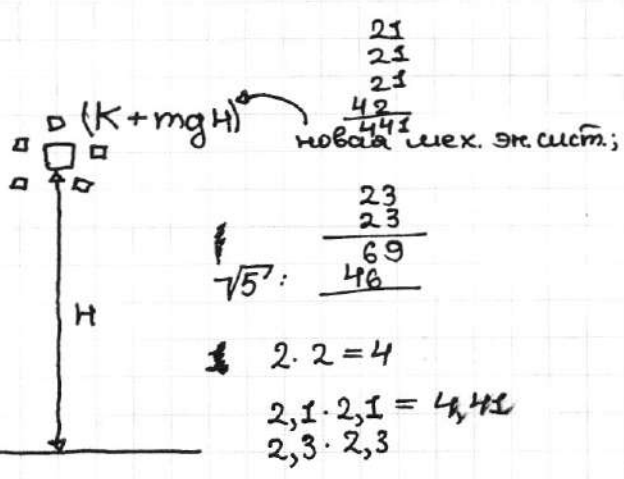 21
21
21
42
441
(K + mgH)
новая мех. эн. сист.;
H
23
23
69
46
√5:
2 · 2 = 4
2,1 · 2,1 = 4,41
2,3 · 2,3